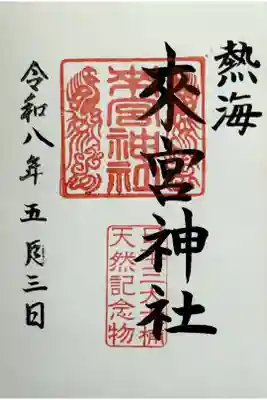 熱海
來宮神社
令和八年五月三日
來宮神社
天然記念物